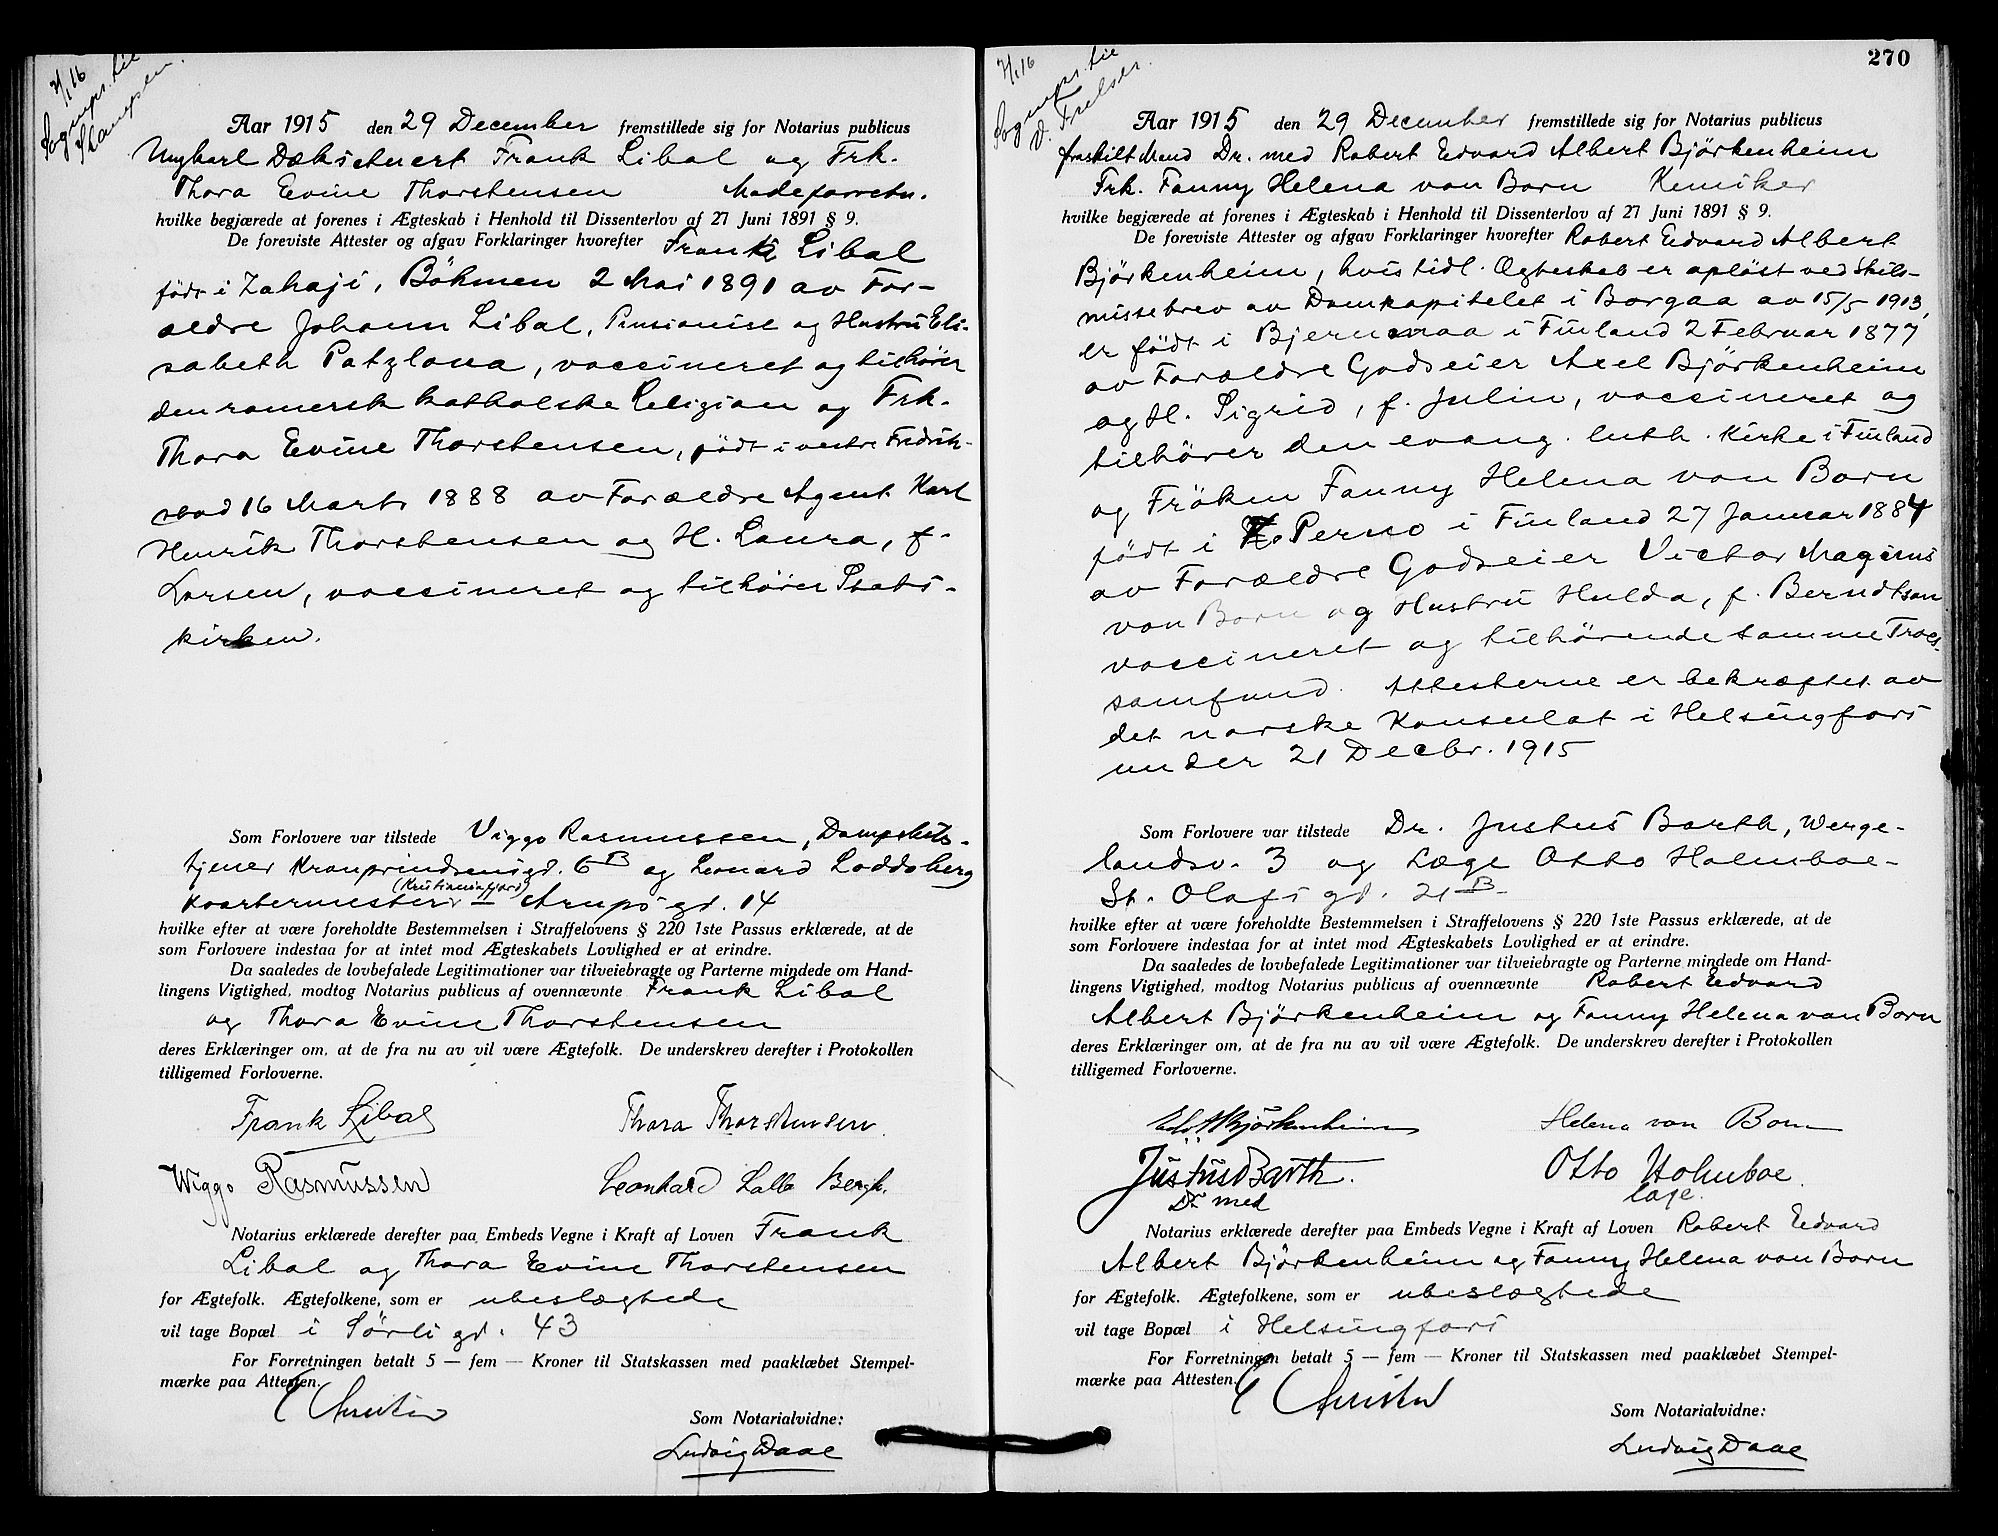 7/1 16
Sogneprs. til
Aar 1915 den 29 December fremstillede sig for Notarius publicus
Ungkarl Frank Libal og Frk.
Thora Evine Thorstensen Modeforretn.
hvilke begjærede at forenes i Ægteskab i Henhold til Dissenterlov af 27 Juni 1891 § 9.
De foreviste Attester og afgav Forklaringer hvorefter Frank Libal
födt i Zahaji, Böhmen 2 Mai 1891 av For-
ældre Johann Libal, Pensionist og Hustru Eli-
sabeth Patzlova, vaccineret og tilhörer
den romersk katholske Religion og Frk.
Thora Evine Thorstensen, födt i vestre Fredrik-
stad 16 Marts 1888 av Forældre Agent Karl
Henrik Thorstensen og H. Laura, f.
Larsen, vaccineret og tilhörer Stats-
kirken.
Som Forlovere var tilstede Viggo Rasmussen, Dampskibs-
tjener Kronprindsensgd. 6 B og Leonard Loddoberg
(Kristianiafjord)
Kvartermester Arups gd. 14
hvilke efter at være foreholdte Bestemmelsen i Straffelovens § 220 1ste Passus erklærede, at de
som Forlovere indestaa for at intet mod Ægteskabets Lovlighed er at erindre.
Da saaledes de lovbefalede Legitimationer var tilveiebragte og Parterne mindede om Hand-
lingens Vigtighed, modtog Notarius publicus af ovennævnte Frank Libal
og Thora Evine Thorstensen
deres Erklæringer om, at de fra nu av vil være Ægtefolk. De underskrev derefter i Protokollen
tilligemed Forloverne.
Frank Libal Thora Thorstensen.
Wiggo Rasmussen Leonhard
Notarius erklærede derefter paa Embeds Vegne i Kraft af Loven Frank
Libal og Thora Evine Thorstensen
for Ægtefolk. Ægtefolkene, som er ubeslægtede
vil tage Bopæl i Sörli gd. 43
For Forretningen betalt 5 — fem — Kroner til Statskassen med paaklæbet Stempel-
mærke paa Attesten.
Som Notarialvidne:
Ludvig Daae
270
7/1 16
Sogneprs. til
v. Frelser.
Aar 1915 den 29 December fremstillede sig for Notarius publicus
fraskilt Mand Dr. med Robert Edvard Albert Björkenheim
Frk. Fanny Helena von Born Kemiker
hvilke begjærede at forenes i Ægteskab i Henhold til Dissenterlov af 27 Juni 1891 § 9.
De foreviste Attester og afgav Forklaringer hvorefter Robert Edvard Albert
Björkenheim, hvis tidl. Ægteskab er oplöst ved Skils-
missebrev av Domkapitelet i Borgaa av 15/5 1913,
er födt i Bjernonaa i Finland 2 Februar 1877
av Forældre Godseier Axel Björkenheim
og H. Sigrid, f. Julin, vaccineret og
tilhörer den evang. luth. Kirke i Finland
og Fröken Fanny Helena von Born
födt i Perno i Finland 27 Januar 1884
av Forældre Godseier Victor Magnus
von Born og Hustru Hulda, f. Berndtson
vaccineret og tilhörende samme Troes-
samfund. Attesterne er bekræftet av
det norske Konsulat i Helsingfors
under 21 Decbr. 1915
Som Forlovere var tilstede Dr. Justus Barth, Werge-
landsv. 3 og Læge Otto Holmboe-
St. Olafs gd. 21 B-
hvilke efter at være foreholdte Bestemmelsen i Straffelovens § 220 1ste Passus erklærede, at de
som Forlovere indestaa for at intet mod Ægteskabets Lovlighed er at erindre.
Da saaledes de lovbefalede Legitimationer var tilveiebragte og Parterne mindede om Hand-
lingens Vigtighed, modtog Notarius publicus af ovennævnte Robert Edvard
Albert Björkenheim og Fanny Helena von Born
deres Erklæringer om, at de fra nu av vil være Ægtefolk. De underskrev derefter i Protokollen
tilligemed Forloverne.
Björkenheim Helena von Born
Justus Barth. Otto Holmboe.
Dr med læge
Notarius erklærede derefter paa Embeds Vegne i Kraft af Loven Robert Edvard
Albert Björkenheim og Fanny Helena von Born
for Ægtefolk. Ægtefolkene, som er ubeslægtede
vil tage Bopæl i Helsingfors
For Forretningen betalt 5 — fem — Kroner til Statskassen med paaklæbet Stempel-
mærke paa Attesten.
Som Notarialvidne:
Ludvig Daae